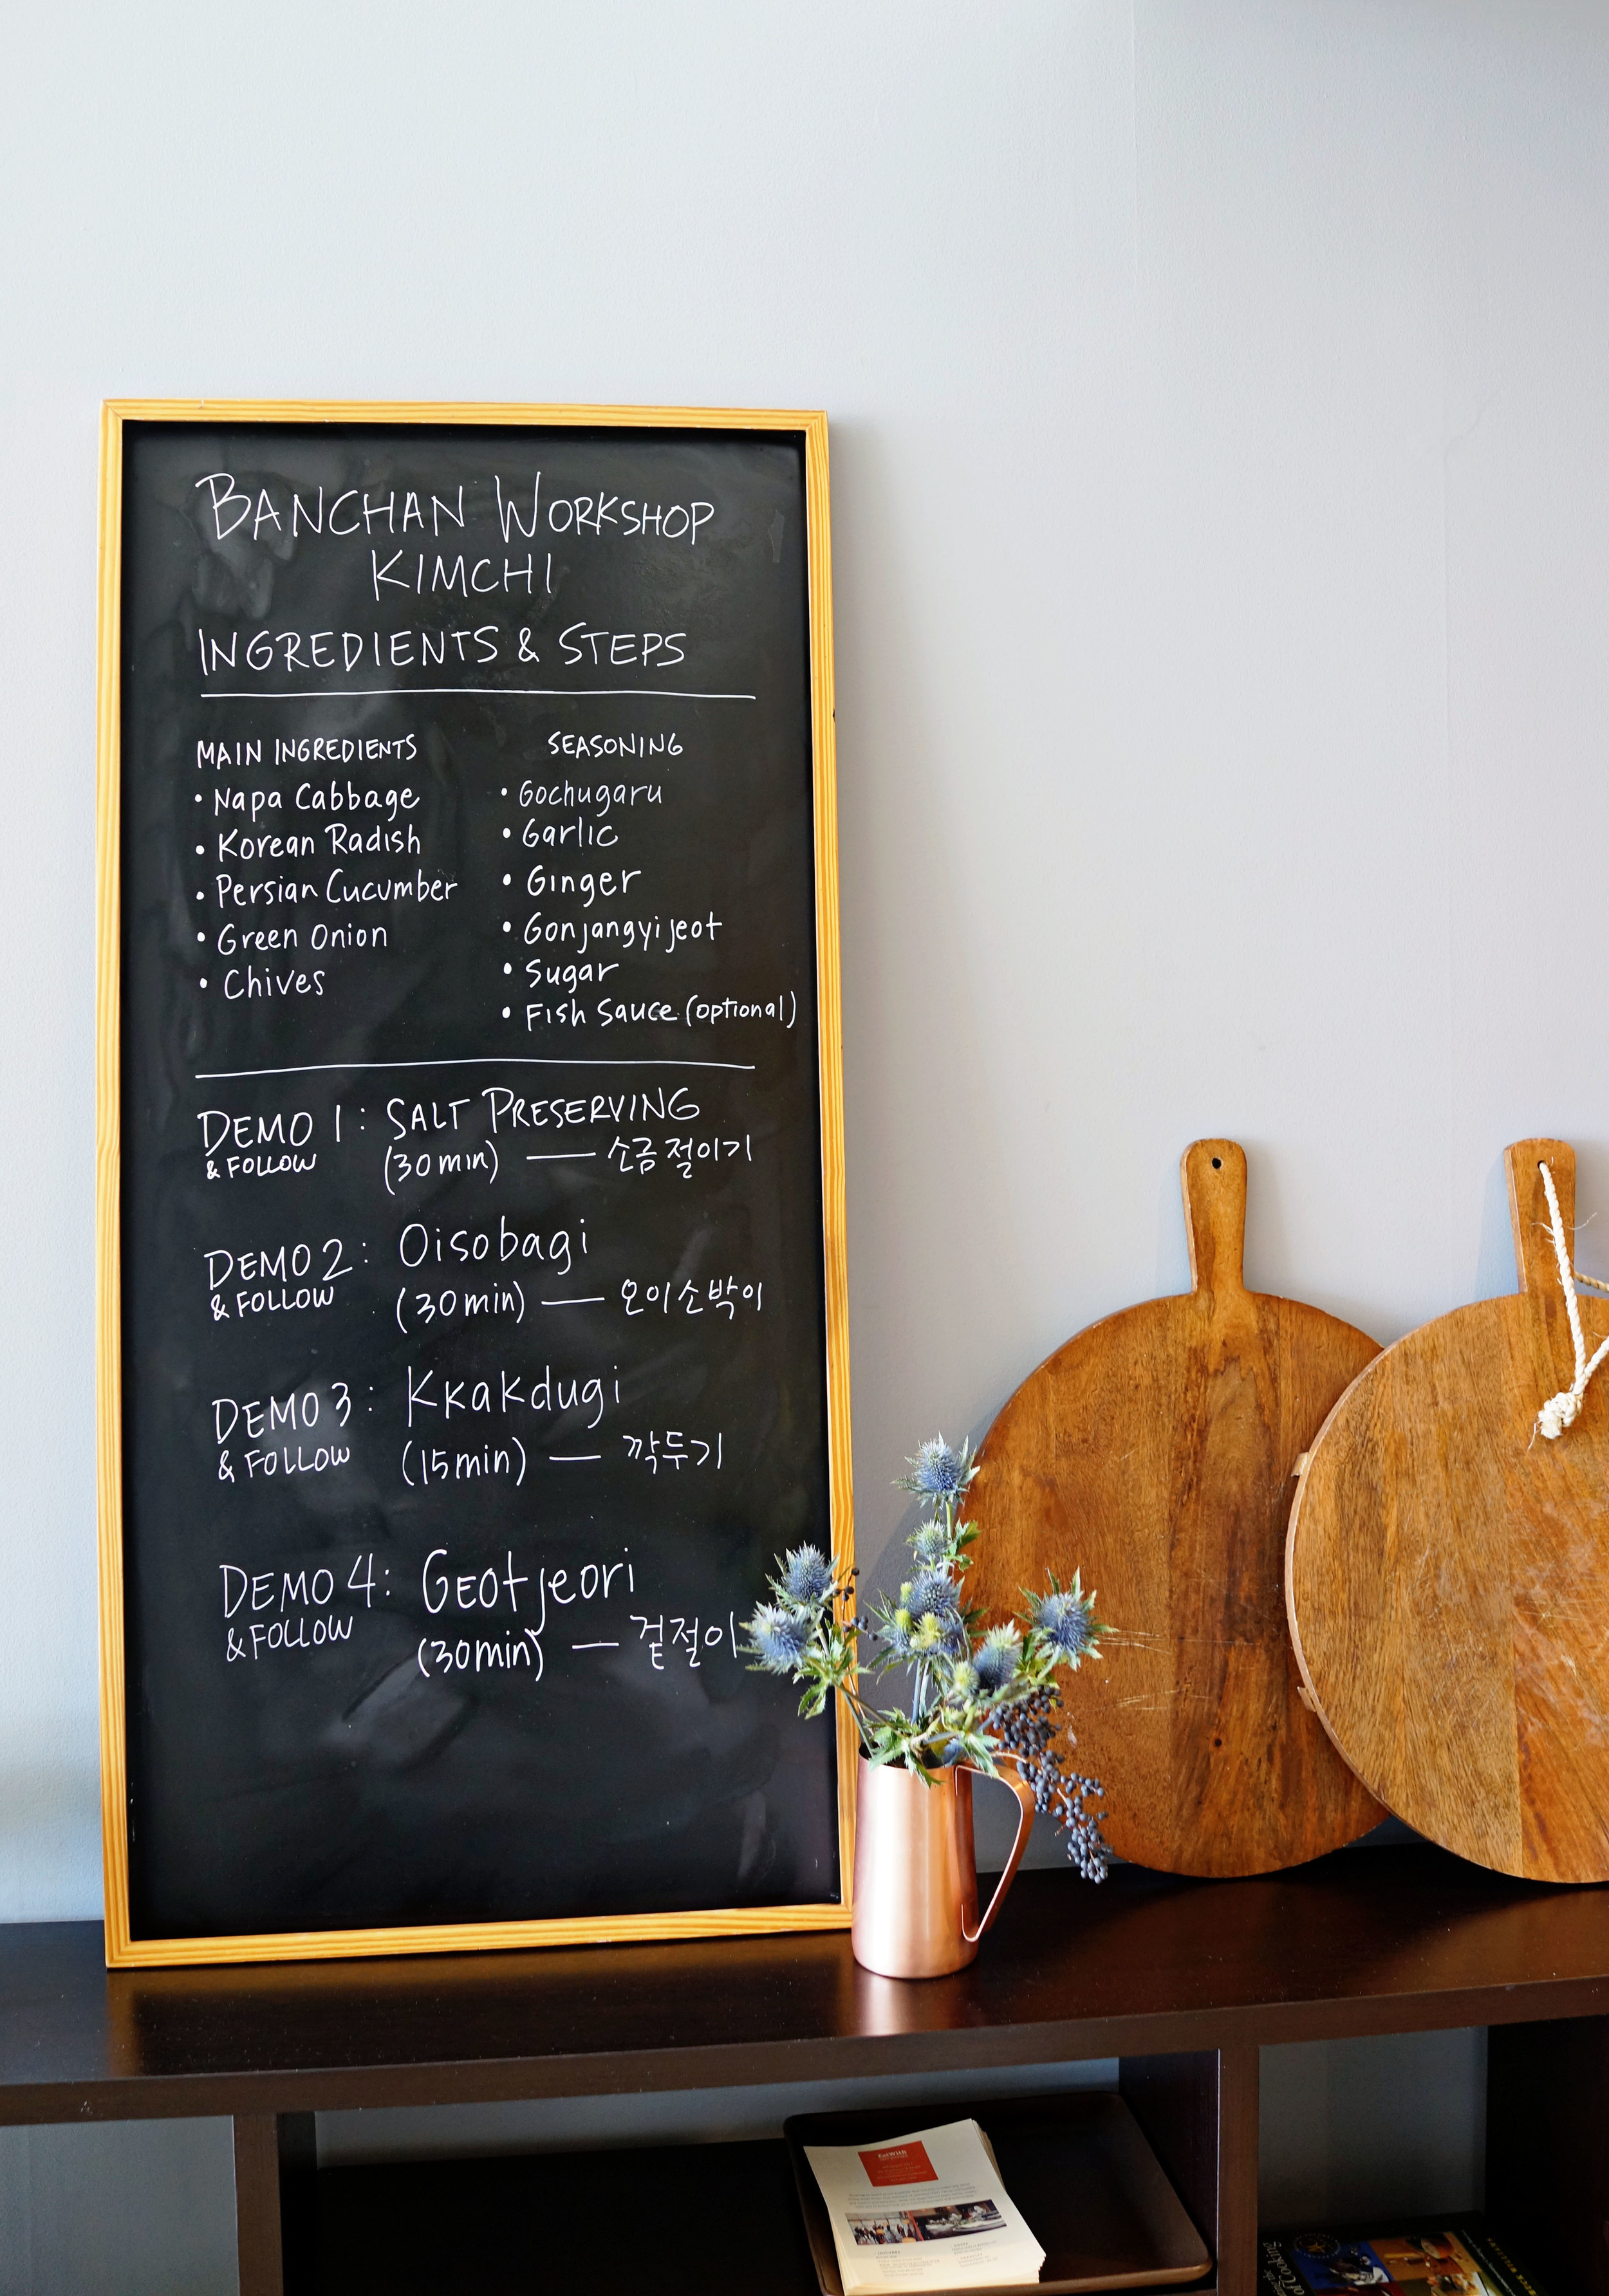 BANCHAN WORKSHOP
KIMCHI
INGREDIENTS & STEPS
MAIN INGREDIENTS
• Napa Cabbage
• Korean Radish
• Persian Cucumber
• Green Onion
• Chives
SEASONING
• Gochugaru
• Garlic
• Ginger
• Gonjangyijeot
• Sugar
• Fish Sauce (optional)
DEMO 1: SALT PRESERVING
& FOLLOW (30min) — 소금절이기
DEMO 2: Oisobagi
& FOLLOW (30min) — 오이소박이
DEMO 3: Kkakdugi
& FOLLOW (15min) — 깍두기
DEMO 4: Geotjeori
& FOLLOW (30min) — 겉절이
EatWith
of Cooking